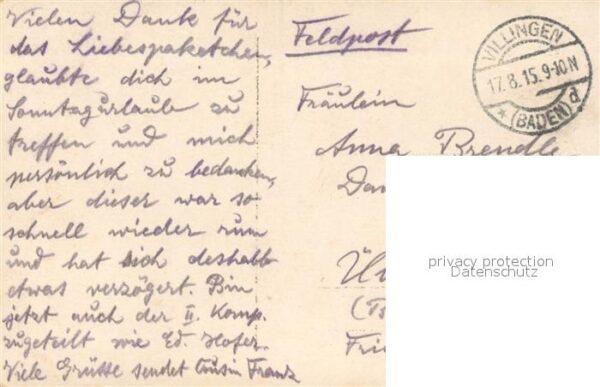 Vielen Dank für
das Liebespaketchen,
glaubte dich im
Sonntagurlaube zu
treffen und mich
persönlich zu bedanken,
aber dieser war so
schnell wieder rum
und hat sich deshalb
etwas verzögert. Bin
jetzt auch der II. Komp.
zugeteilt wie Ed. Hofer.
Viele Grüsse sendet Cousin Franz
Feldpost
VILLINGEN
17.8.15.9-10N
(BADEN) d
Fräulein
Anna Brendle
privacy protection
Datenschutz